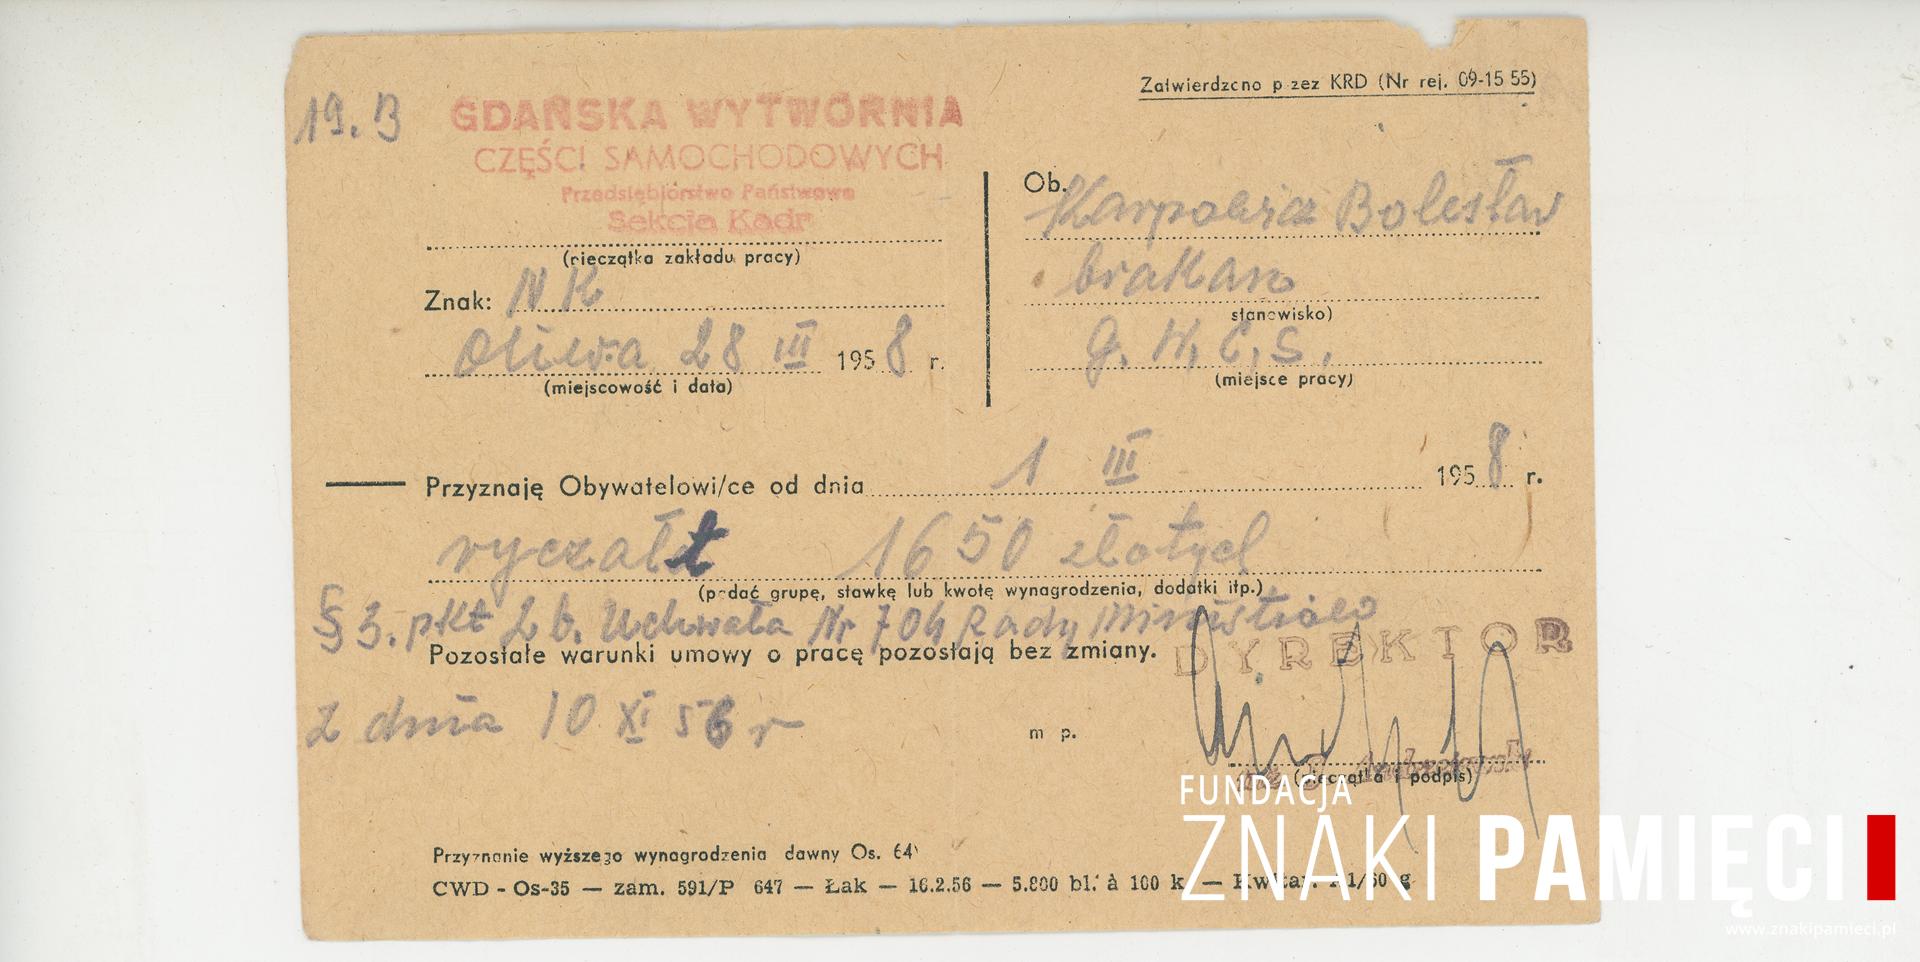 19. B
GDAŃSKA WYTWÓRNIA
CZĘŚCI SAMOCHODOWYCH
Przedsiębiorstwo Państwowe
Sekcja Kadr
(pieczątka zakładu pracy)
Znak: NK
Oliwa 28 III 1958 r.
(miejscowość i data)
Zatwierdzono przez KRD (Nr rej. 09-15 55)
Ob. Karpowicz Bolesław
brakarz
stanowisko)
G. W. C. S.
(miejsce pracy)
Przyznaję Obywatelowi/ce od dnia 1 III 1958 r.
ryczałt 1650 złotych
(podać grupę, stawkę lub kwotę wynagrodzenia, dodatki itp.)
§ 3. pkt 2 b. Uchwała Nr 704 Rady Ministrów
Pozostałe warunki umowy o pracę pozostają bez zmiany.
DYREKTOR
z dnia 10 XI 56 r
m p.
(pieczątka i podpis)
Przyznanie wyższego wynagrodzenia dawny Os. 64)
CWD - Os-35 — zam. 591/P 647 — Łak — 16.2.56 — 5.800 bl. à 100 k. —
FUNDACJA
ZNAKI PAMIĘCI
www.znakipamieci.pl